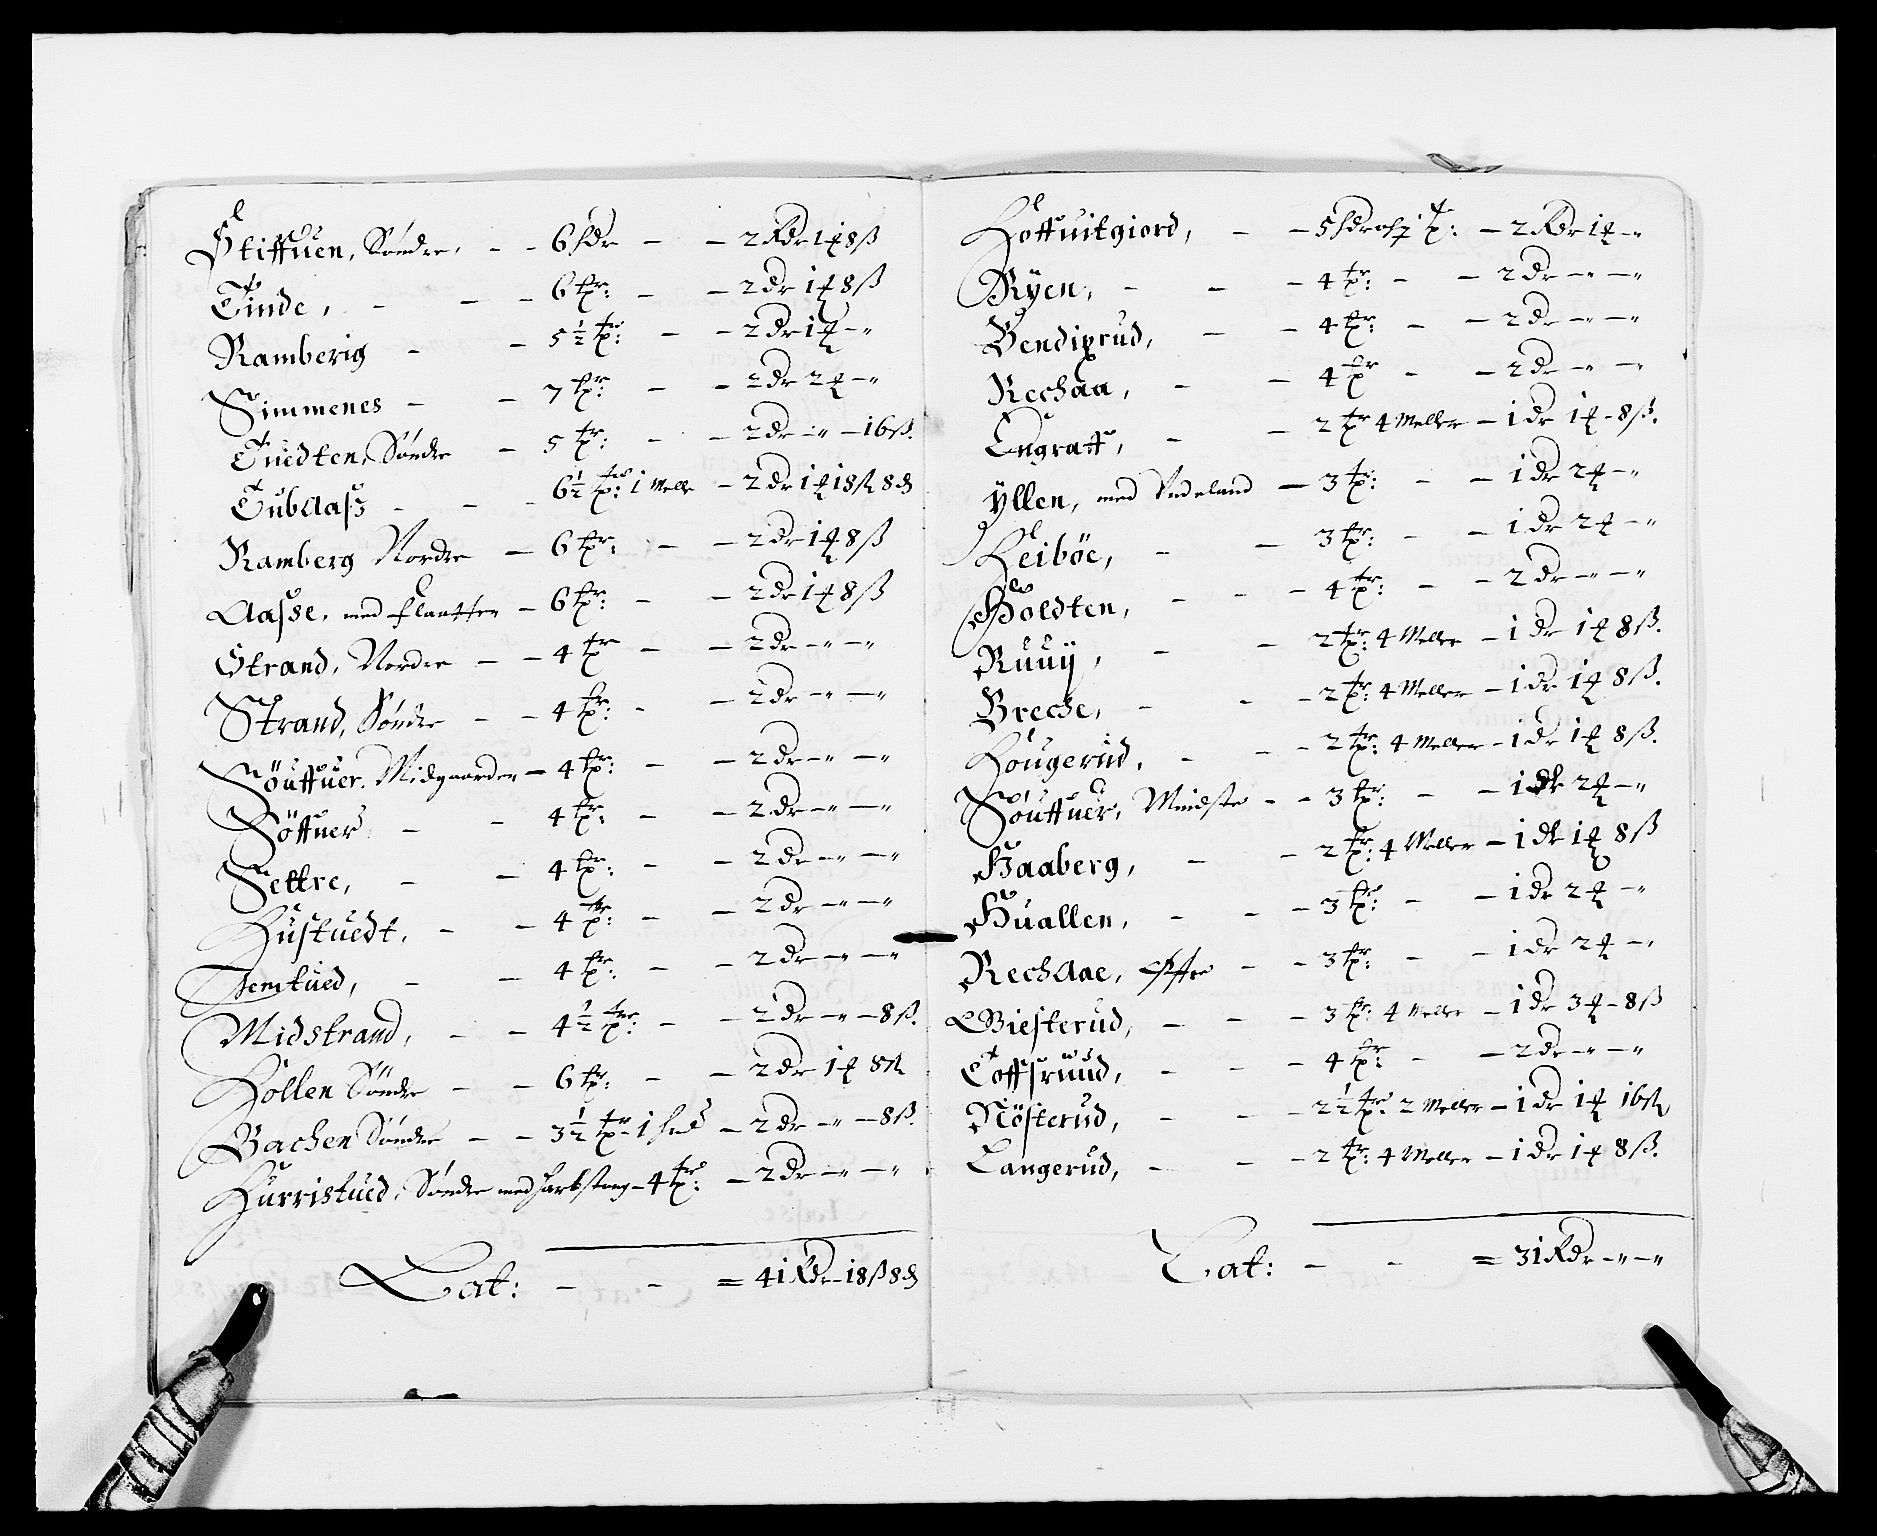 Stiffuen, Söndre, - - 6 sdr - - 2 Rdr 1 ₰ 8 ß
Tinde, - - - 6 tpr: - - 2 dr 1 ₰ 8 ß
Ramberig - - 5½ tpr: - - 2 dr 1 ₰ - "
Simmenes - - 7 tpr: - - 2 dr 2 ₰ - "
Tuedten, Söndre - 5 tpr: - - 2 dr - " - 16 ß.
Tubaasz - - - 6½ tpr: 1 Melle - 2 dr 1 ₰ 18 ß 8 d
Ramberg Nordre - 6 tpr: - - 2 dr 1 ₰ 8 ß
Aasse, med flaatten - 6 tpr: - - 2 dr 1 ₰ 8 ß
Strand, Nordre - - 4 tpr - - 2 dr - " - "
Strand, Söndre - - 4 tpr: - - 2 dr - " - "
Söuffuer. Midgaarden - 4 tpr: - - 2 dr - " - "
Söffuer - - 4 tpr: - - 2 dr - " - "
Settre, - - 4 tpr: - - 2 dr - " - "
Hustuedt, - - 4 tpr: - - 2 dr - " - "
Jemtued, - - 4 tpr: - - 2 dr - " - "
Midstrand, - - 4½ tpr: - - 2 dr - " - 8 ß.
Hollen Söndre - - 6 tpr: - - 2 dr 1 ₰ 8 ß
Bachen Söndre - - 3½ tpr - 1 - 2 dr - " - 8 ß.
Hurristued, Söndre med - 4 tpr: - 2 dr - " - "
Lat: - - = 41 Rdr - 18 ß 8 d
Hoffuitgiord, - - 5 sdr og ½ tp: - 2 Rdr 1 ₰ - "
Ryen, - - - 4 tpr: - - 2 dr - " - "
Bendixrud, - - 4 tpr: - - 2 dr - " - "
Rechaa, - - 4 tpr - - 2 dr - " - "
Engraff, - - 2 tpr 4 Meller - 1 dr 1 ₰ - 8 ß.
Yllen, med Ondeland - 3 tpr: - - 1 dr 2 ₰ - "
Leiböe, - - 3 tpr: - - 1 dr 2 ₰ - "
Holdten, - - - 4 tpr: - - 2 dr - " - "
Ruuÿ, - - 2 tpr: 4 Meller - 1 dr 1 ₰ 8 ß.
Breche, - - - 2 tpr: 4 Meller - 1 dr 1 ₰ 8 ß.
Hougerud, - - - 2 tpr: 4 Meller - 1 dr 1 ₰ 8 ß.
Söuffuer, Mindste - - 3 tpr: - - 1 dr 2 ₰ - "
Haaberg, - - 2 tpr: 4 Meller - 1 dr 1 ₰ 8 ß
Huallen, - - - 3 tpr: - - 1 dr 2 ₰ - "
Rechaae, Öffre - - 3 tpr: - - 1 dr 2 ₰ - "
Biesterud, - - - 3 tpr: 4 Meller - 1 dr 3 ₰ - 8 ß
Toffsruud, - - - 4 tpr: - - 2 dr - " - "
Nösterud, - - - 2½ tpr: 2 Meller - 1 dr 1 ₰ 16 ß
Langerud, - - - 2 tpr: 4 Meller - 1 dr 1 ₰ 8 ß.
Lat: - - = 31 Rdr - " - "